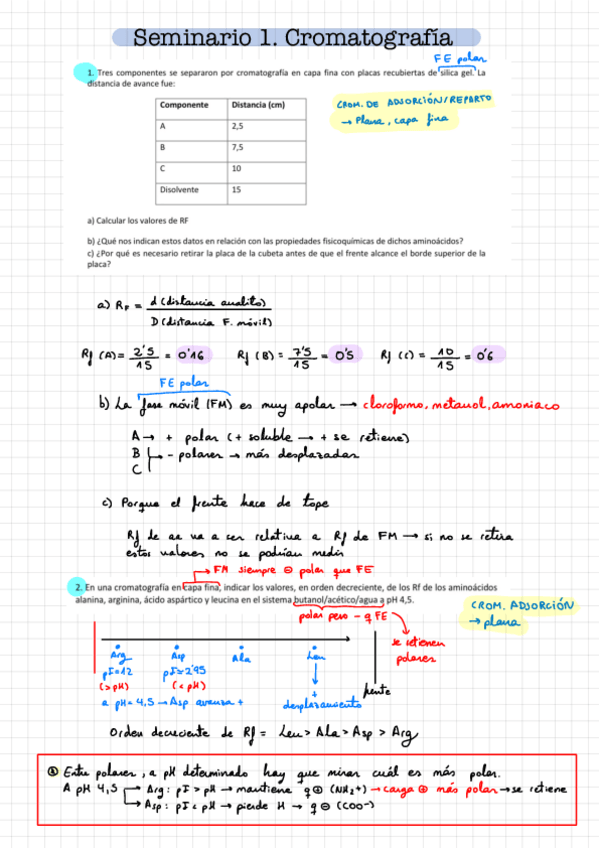 Seminario 1. Cromatografía
FE polar
1. Tres componentes se separaron por cromatografía en capa fina con placas recubiertas de sílica gel. La
distancia de avance fue:
Componente Distancia (cm)
A 2,5
B 7,5
C 10
Disolvente 15
CROM. DE ADSORCIÓN/REPARTO
→ Plana, capa fina
a) Calcular los valores de RF
b) ¿Qué nos indican estos datos en relación con las propiedades fisicoquímicas de dichos aminoácidos?
c) ¿Por qué es necesario retirar la placa de la cubeta antes de que el frente alcance el borde superior de la
placa?
a) RF = d (distancia analito) / D (distancia F. móvil)
Rf (A) = 2'5 / 15 = 0'16 Rf (B) = 7'5 / 15 = 0'5 Rf (C) = 10 / 15 = 0'6
FE polar
b) La fase móvil (FM) es muy apolar → cloroformo, metanol, amoniaco
A → + polar (+ soluble → + se retiene)
B
C
- polares → más desplazadas
c) Porque el frente hace de tope
Rf de aa va a ser relativa a Rf de FM → si no se retira
estos valores no se podrían medir
→ FM siempre ⊖ polar que FE
2. En una cromatografía en capa fina, indicar los valores, en orden decreciente, de los Rf de los aminoácidos
alanina, arginina, ácido aspártico y leucina en el sistema butanol/acético/agua a pH 4,5.
CROM. ADSORCIÓN
→ plana
polar pero - q FE
se retienen
polares
Arg Asp Ala Leu
pI=12 pI=2'95
(> pH) (< pH)
frente
a pH= 4,5 → Asp avanza +
+
desplazamiento
Orden decreciente de Rf = Leu > Ala > Asp > Arg
Entre polares, a pH determinado hay que mirar cuál es más polar.
A pH 4,5 → Arg: pI > pH → mantiene q ⊕ (NH2+) → carga ⊕ más polar → se retiene
→ Asp: pI < pH → pierde H → q ⊖ (COO-)